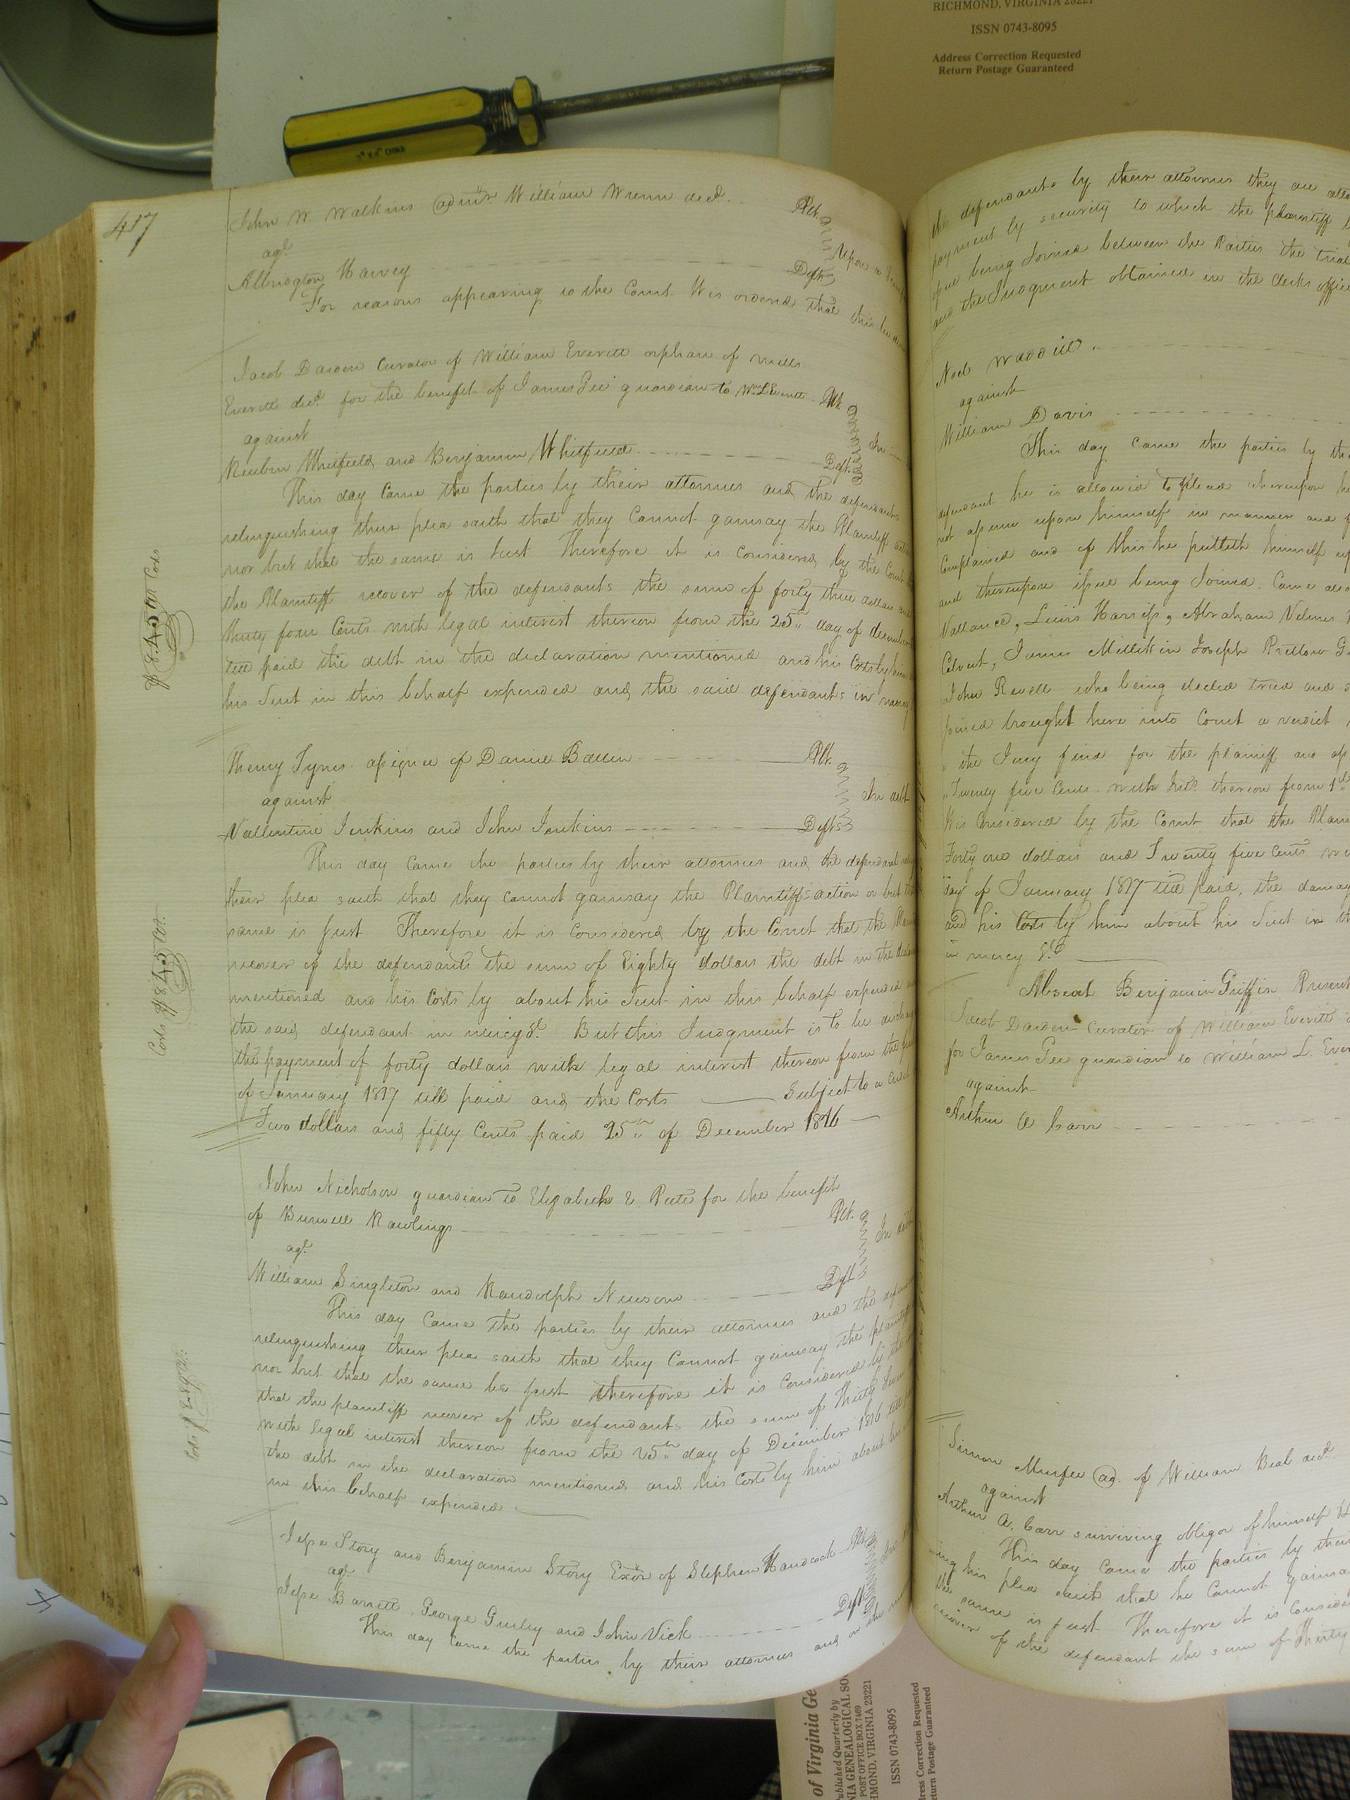 RICHMOND, VIRGINIA 23221
ISSN 0743-8095
Address Correction Requested
Return Postage Guaranteed
417
John W. Watkins adm.r William Wrenn decd. Plt.
agt.
Albrington Harvey Dft
Upon a
For reasons appearing to the Court It is ordered that this
Jacob Darden Curator of William Everett orphan of Mills
Everett decd. for the benefit of James Pee guardian to Wm. L Everett Plt.
against
In
Reuben Whitfield and Benjamin Whitfield Dfts.
This day Came the parties by their attornies and the defendants
relinguishing their plea saith that they Cannot gainsay the Plaintiff action
nor but that the same is Just Therefore it is Considered by the Court
the Plaintiff recover of the defendants the sum of forty three dollars and
thirty four Cents with legal interest thereon from the 25th day of December
till paid the debt in the declaration mentioned and his Costs by him
his Suit in this behalf expended and the said defendants in mercy
$8.45 Cos
Henry Tyres assignee of Daniel Batten Plt.
against
In debt
Vallentine Jenkins and John Jenkins Dfts
This day came the parties by their attornies and the defendant
their plea saith that they cannot gainsay the Plaintiffs action or but
same is Just Therefore it is Considered by the Court that the Plain
recover of the defendants the sum of Eighty dollars the debt in the declaration
mentioned and his Costs by about his Suit in this behalf expended and
the said defendant in mercy &c. But this Judgment is to be discharg
the payment of forty dollars with legal interest thereon from the
of January 1817 till paid and the Costs Subject to a credit
Two dollars and fifty Cents paid 25th of December 1816
Costs $8.45
John Nicholson guardian to Elizabeth E Peete for the benefit
of Burwell Rawlings Plt.
agt.
In debt
William Singleton and Randolph Newsom Dft
This day Came the parties by their attornies and the defend
relinguishing their plea saith that they Cannot gainsay the plaintiff
nor but that the same be just therefore it is Considered by the
that the plaintiff recover of the defendants the sum of Thirty
with legal interest thereon from the 25th day of December 1816 till
the debt in the declaration mentioned and his Costs by him about his
in this behalf expended
Jesse Story and Benjamin Story Exors of Stephen Handcock Plt.
agt.
Jesse Barrett, George Gurley and John Vick Dft
This day Came the parties by their attornies and
the defendants by their attornies they are
payment by security to which the plaintiff
issue being Joined between the Parties the trial
and the Judgment obtained in the Clerks office
Noel Waddill
against
William Davis
This day came the parties by the
defendant he is allowed to plead whereupon he
not assume upon himself in manner and
Complained and of this he putteth himself
and thereupon issue being Joined. Came also
Vallance, Lewis Harriss, Abraham
Calvert, James Millikin Joseph Pretlow
John Revell who being elected tried and
joined brought here into Court a verdict
the Jury find for the plaintiff and
Twenty five Cents with Int. thereon from 1st
It is Considered by the Court that the Plain
Forty one dollars and Twenty five Cents
day of January 1817 till paid, the damag
and his Costs by him about his Suit in
in mercy &c
Absent Benjamin Griffin Present
Jacob Darden Curator of William Everett
for James Pee guardian to William L. Ever
against
Arthur A Carr
Simon Murfee ad. of William Beal decd.
against
Arthur A. Carr surviving obligor of himself
This day came the parties by their
ing his plea saith that he Cannot gainsa
the same is just Therefore it is Conside
recover of the defendant the sum of Thirty
of Virginia Ge
Published Quarterly by
NIA GENEALOGICAL SO
POST OFFICE BOX 7469
HMOND, VIRGINIA 23221
ISSN 0743-8095
dress Correction Requested
eturn Postage Guaranteed